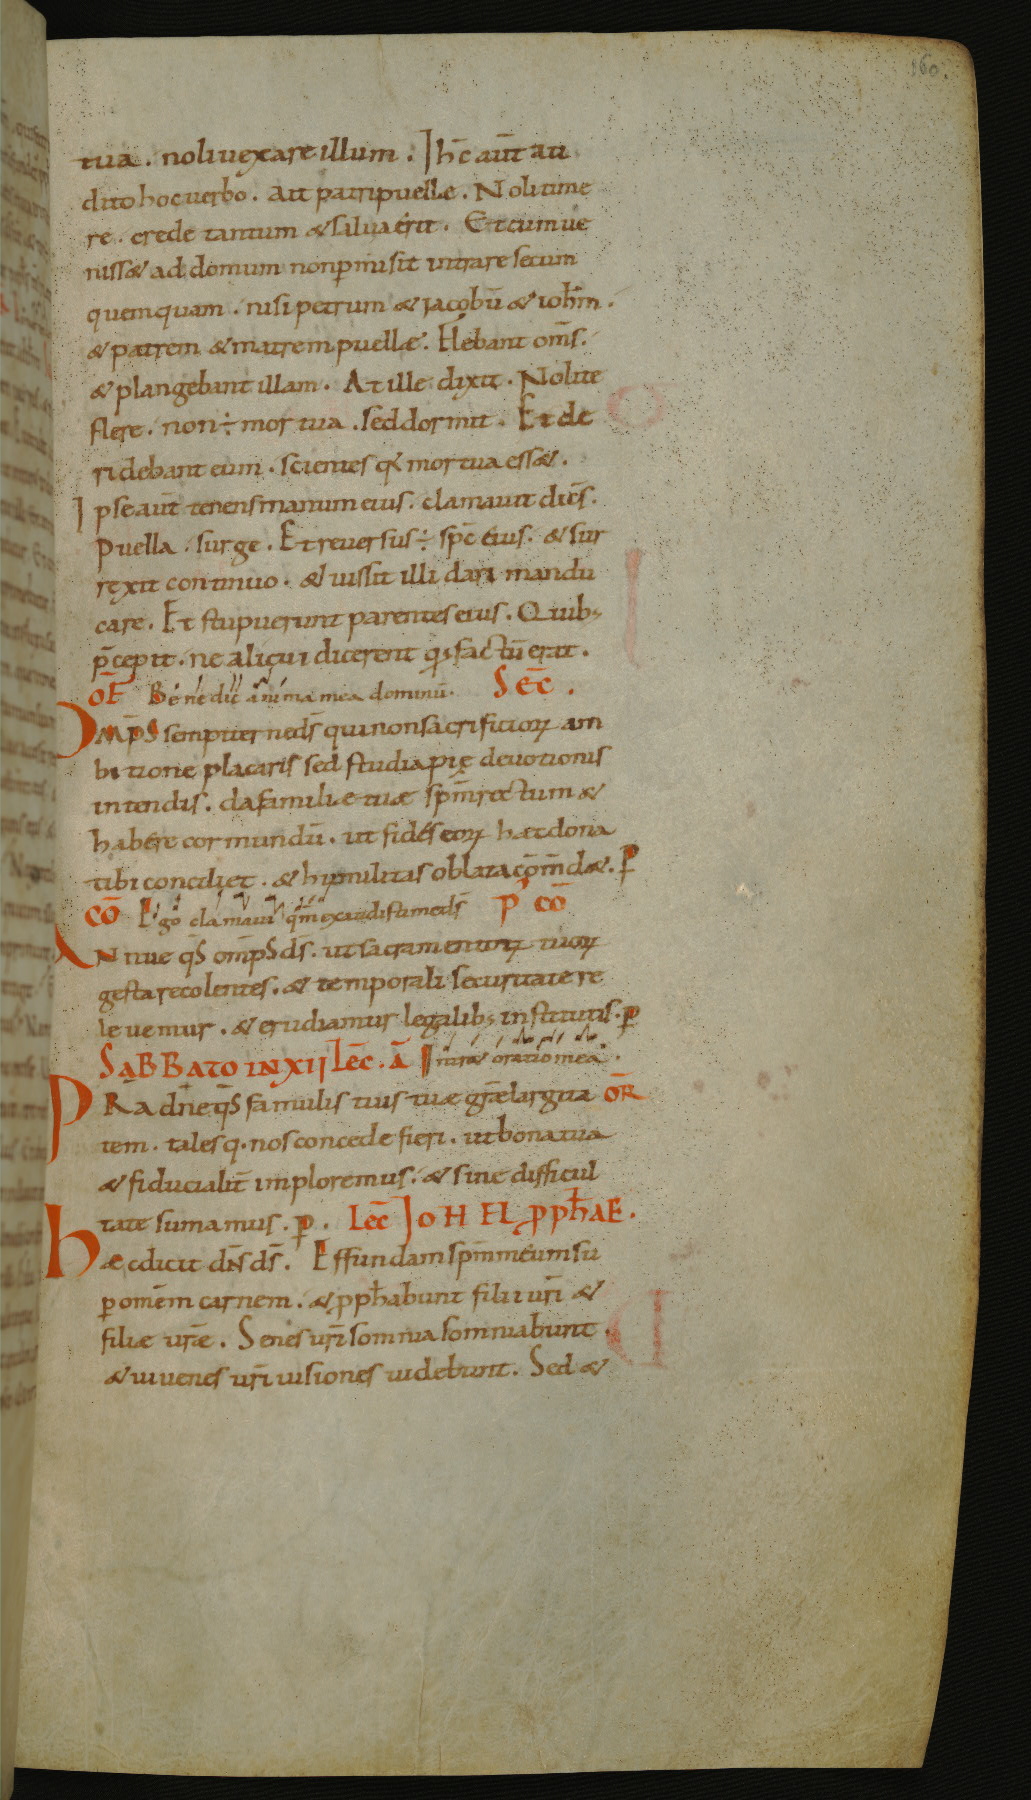 160.
tua. noli uexare illum. Ihc̄ aūt au
dito hoc uerbo. ait patri puelle. Noli time
re. crede tantum & salua erit. Et cum ue
niss& ad domum non p̱misit intrare secum
quemquam. nisi petrum & iacobū & ioh̄m.
& patrem & matrem puellæ. Flebant om̄s.
& plangebant illam. At ille dixit. Nolite
flere. non ÷ mortua. sed dormit. Et de
ridebant eum. scientes qđ mortua ess&.
Ipse aūt tenens manum eius. clamauit dicēs.
Puella. surge. Et reuersus ÷ spc̄ eius. & sur
rexit continuo. & iussit illi dari mandu
care. Et stupuerunt parentes eius. Quib;
p̄cepit. ne alicui dicerent qđ factū erat.
OF Benedic anima mea dominū. SEC̄.
OMP̄S sempiterne ds̄ qui non sacrificioꝝ am
bitione placaris sed studia pię deuotionis
intendis. da familiæ tuæ sp̄m rectum &
habere cor mundū. ut fides eoꝝ hæc dona
tibi conciliet. & humilitas oblata com̄d&. P
CŌ Ego clamaui qm̄ exaudisti me ds̄ P CŌ
ANnue qs̄ omp̄s ds̄. ut sacramentoꝝ tuoꝝ
gesta recolentes. & temporali securitate re
leuemur. & erudiamur legalib; institutis. p̱
SABBATO IN XII LEC̄. Ā Intr& oratio mea.
PRa dn̄e qs̄ famulis tuis tuæ gr̄æ largita OR̄
tem. talesq. nos concede fieri. ut bona tua
& fiducialit̄ imploremus. & sine difficul
tate sumamus. p̱. LEC̄ IOHEL PPH̄AE.
Hæc dicit dn̄s ds̄. Effundam spm̄ meum su
p̱ om̄em carnem. & pph̄abunt filii ur̄i &
filiæ ur̄æ. Senes ur̄i somnia somniabunt.
& iuuenes ur̄i uisiones uidebunt. Sed &